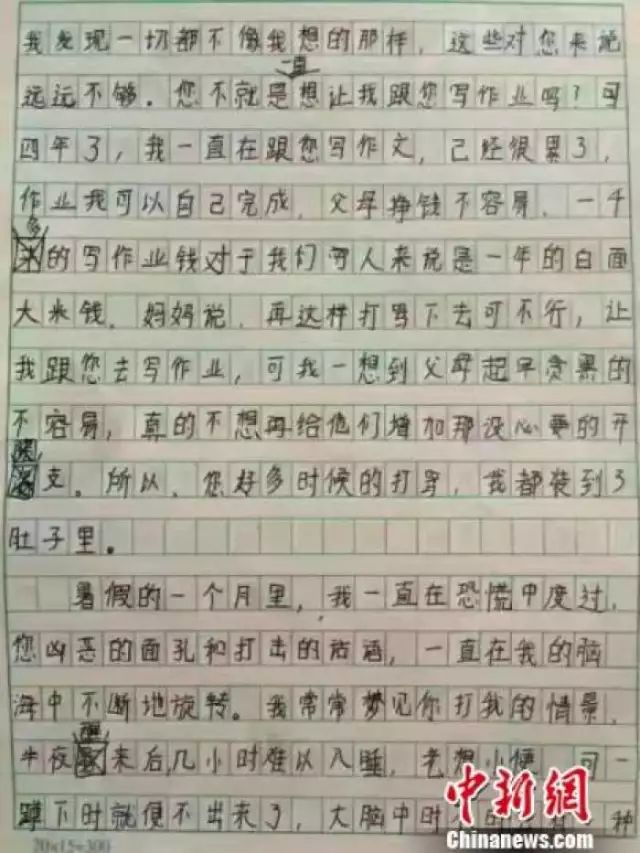 我发现一切都不像我想的那样，这些对您来说
远远不够。您不就是一直想让我跟您写作业吗？可
四年了，我一直在跟您写作文，已经很累了，
作业我可以自己完成，父母挣钱不容易，一千
多的写作业钱对于我们穷人来说是一年的白面
大米钱，妈妈说，再这样打骂下去可不行，让
我跟您去写作业，可我一想到父母起早贪黑的
不容易，真的不想再给他们增加那没必要的开
支。所以，您好多时候的打骂，我都装到了
肚子里。
暑假的一个月里，我一直在恐慌中度过，
您凶恶的面孔和打击的话语，一直在我的脑
海中不断地旋转。我常常梦见你打我的情景，
半夜醒来后，几小时难以入睡，老想小便，可一
蹲下时就便不出来了，大脑中时 种
中新网
Chinanews.com
20×15=300